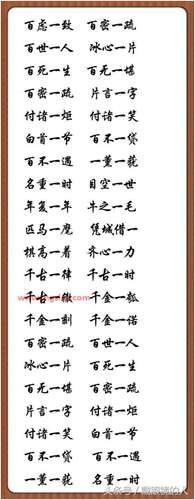 百虑一致 百密一疏
百世一人 冰心一片
百死一生 百无一堪
百密一疏 片言一字
付诸一炬 付诸一笑
白首一节 百不一贷
百不一遇 一薰一莸
名重一时 目空一世
年复一年 牛之一毛
匹马一麾 凭城借一
棋高一着 齐心一力
千古一律 千古一时
千古一辙 千金一瓠
千金一刻 千金一诺
百密一疏 百世一人
冰心一片 百死一生
百无一堪 百密一疏
片言一字 付诸一炬
付诸一笑 白首一节
百不一贷 百不一遇
一薰一莸 名重一时